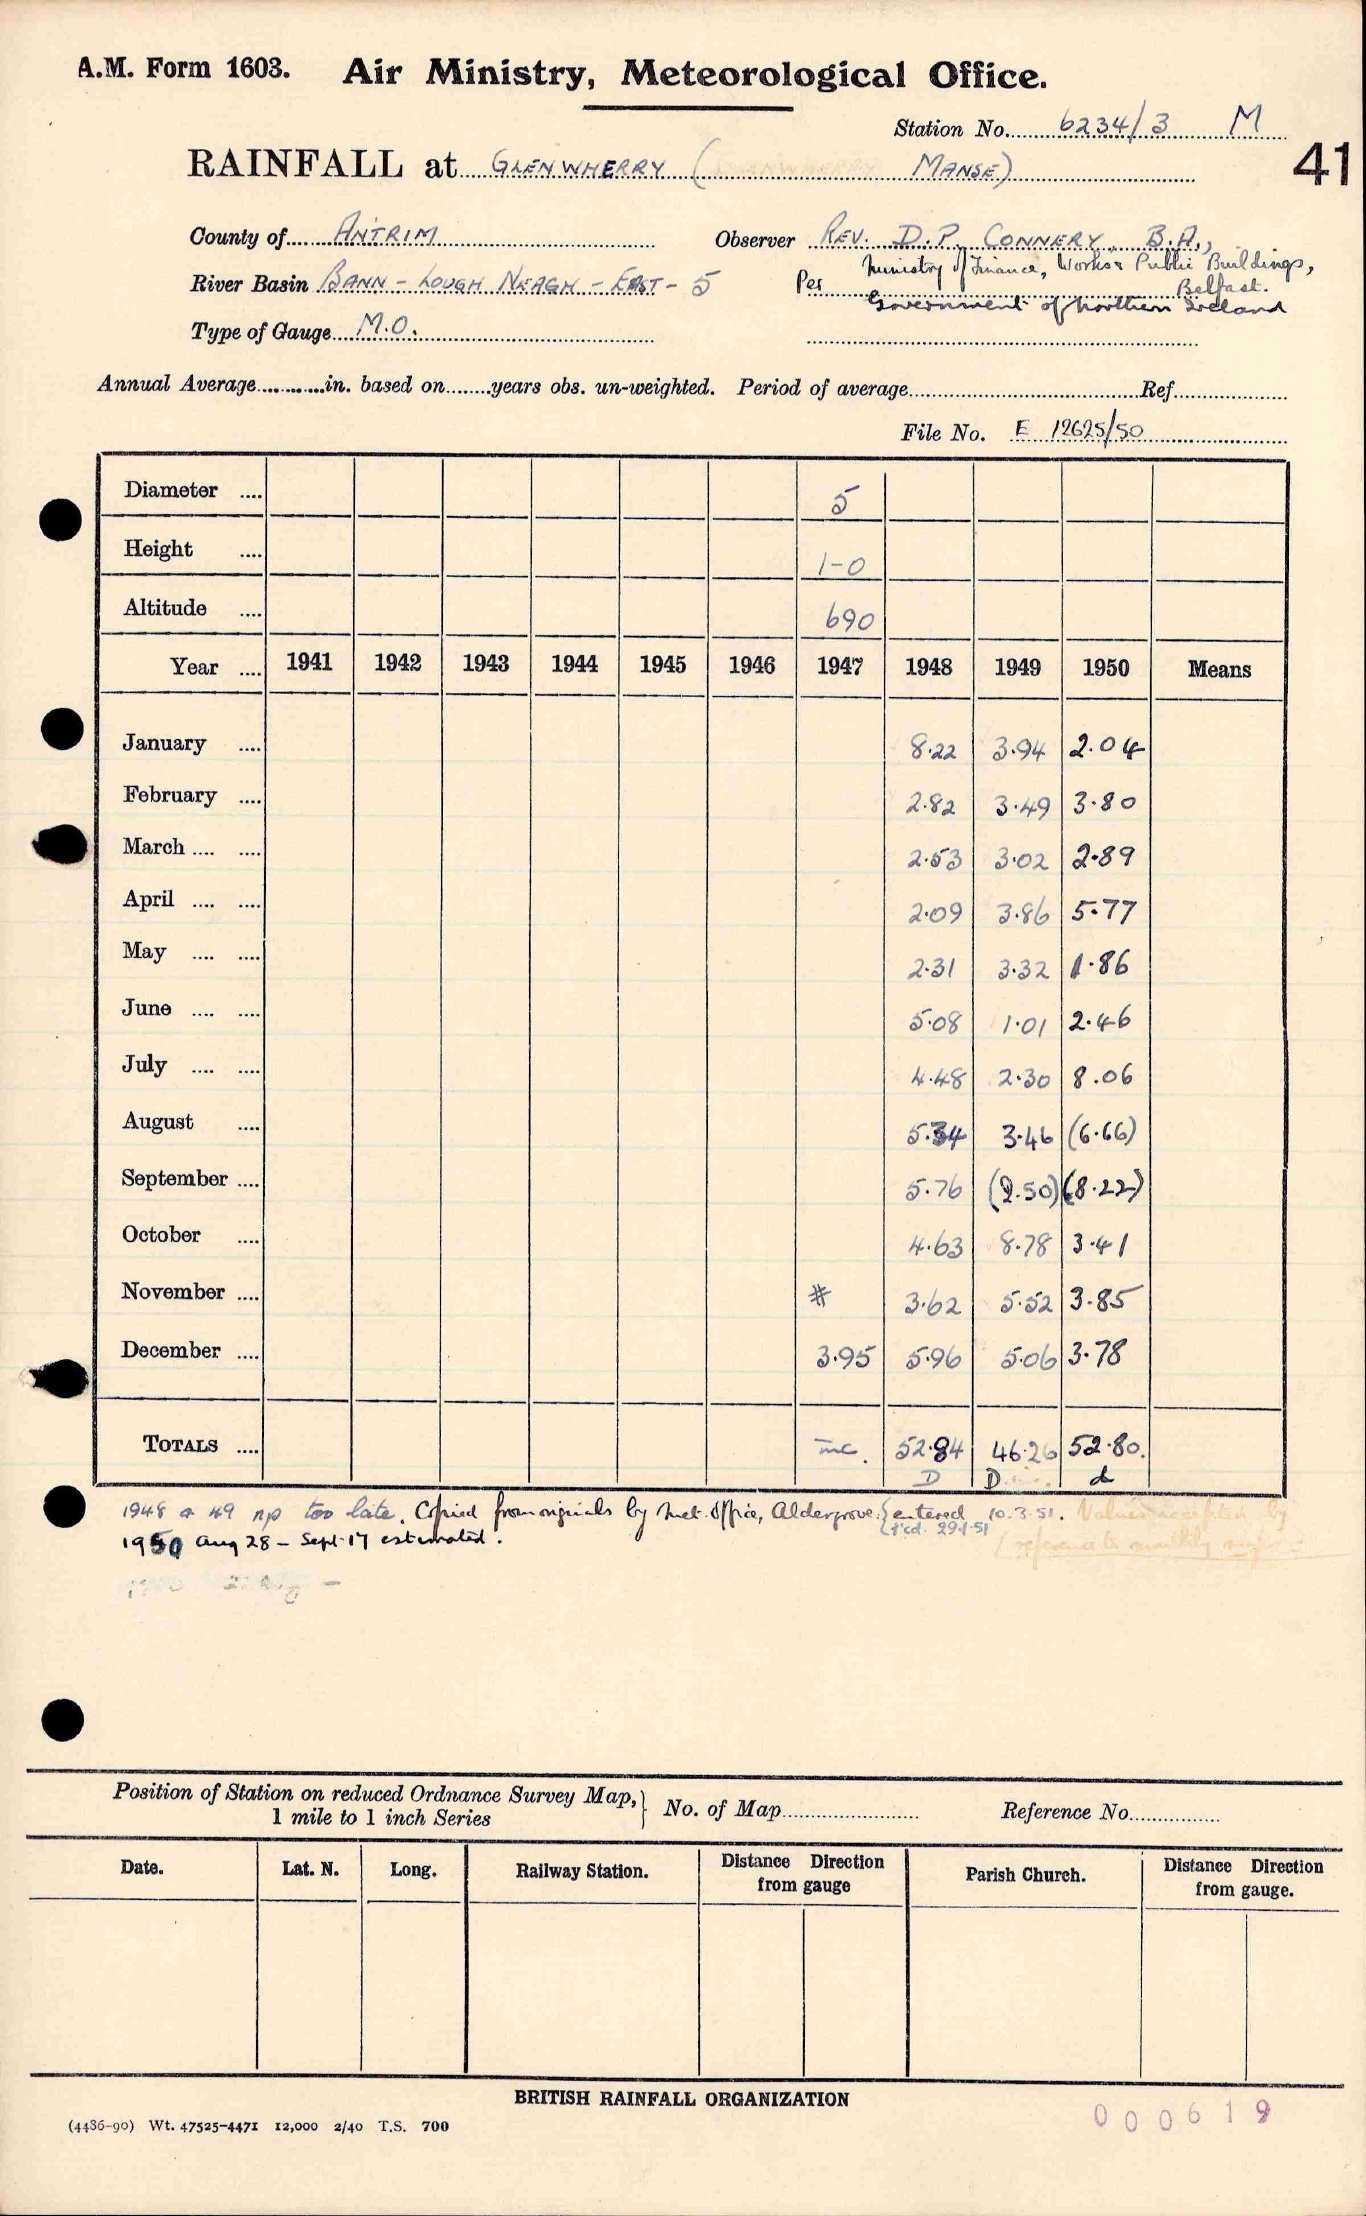 A.M. Form 1603. Air Ministry, Meteorological Office.
Station No. 6234/3 M
41
RAINFALL at GLENWHERRY ( MANSE)
County of ANTRIM Observer REV. D.P. CONNERY, B.A.,
River Basin BANN - LOUGH NEAGH - EAST - 5 Per Ministry of Finance, Works & Public Buildings, Belfast.
Government of Northern Ireland
Type of Gauge M.O.
Annual Average in. based on years obs. un-weighted. Period of average Ref
File No. E 12625/50
Diameter .... 5
Height .... 1-0
Altitude .... 690
Year .... 1941 1942 1943 1944 1945 1946 1947 1948 1949 1950 Means
January .... 8.22 3.94 2.04
February .... 2.82 3.49 3.80
March .... .... 2.53 3.02 2.89
April .... .... 2.09 3.86 5.77
May .... .... 2.31 3.32 1.86
June .... .... 5.08 1.01 2.46
July .... .... 4.48 2.30 8.06
August .... 5.34 3.46 (6.66)
September .... 5.76 (2.50) (8.22)
October .... 4.63 8.78 3.41
November .... # 3.62 5.52 3.85
December .... 3.95 5.96 5.06 3.78
TOTALS .... inc. 52.84 46.26 52.80.
D D d
1948 & 49 np too late. Copied from originals by Met. Office, Aldergrove. entered 10.3.51. Values accepted by
rcd. 29.1.51 reference to monthly maps
1950 Aug 28 - Sept. 17 estimated.
Position of Station on reduced Ordnance Survey Map, 1 mile to 1 inch Series } No. of Map Reference No.
Date. Lat. N. Long. Railway Station. Distance Direction from gauge Parish Church. Distance Direction from gauge.
BRITISH RAINFALL ORGANIZATION
(4486-90) Wt. 47525-4471 12,000 2/40 T.S. 700
000619